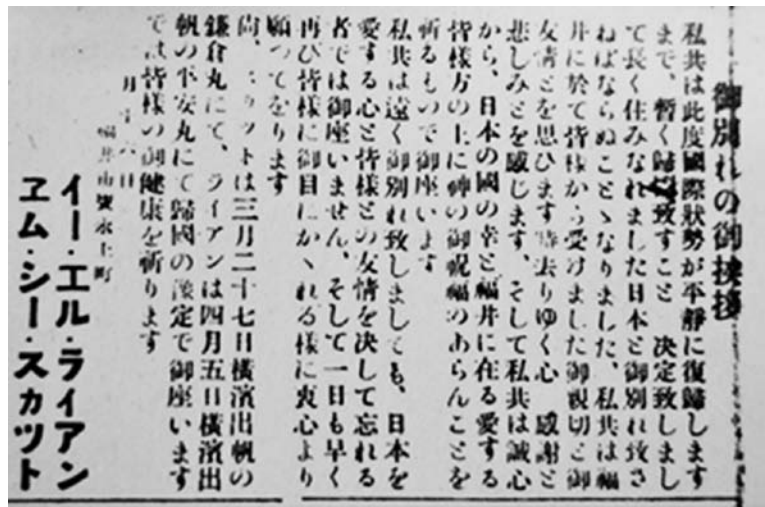 御別れの御挨拶
私共は此度國際狀勢が平靜に復歸します
まで、暫く歸國致すこと 決定致しまし
て長く住みなれました日本と御別れ致さ
ねばならぬことゝなりました、私共は福
井に於て皆樣から受けました御親切と御
友情とを思ひます時去りゆく心 感謝と
悲しみとを感じます、そして私共は誠心
から、日本の國の幸と福井に在る愛する
皆樣方の上に神の御祝福のあらんことを
祈るもので御座います
私共は遠く御別れ致しましても、日本を
愛する心と皆樣との友情を決して忘れる
者では御座いません、そして一日も早く
再び皆樣に御目にかゝれる樣に衷心より
願つてをります
尚、スカツトは三月二十七日橫濱出帆の
鎌倉丸にて、ライアンは四月五日橫濱出
帆の平安丸にて歸國の豫定で御座います
では皆樣の御健康を祈ります
月 六日
福井市寶永上町
イー・エル・ライアン
ヱム・シー・スカツト